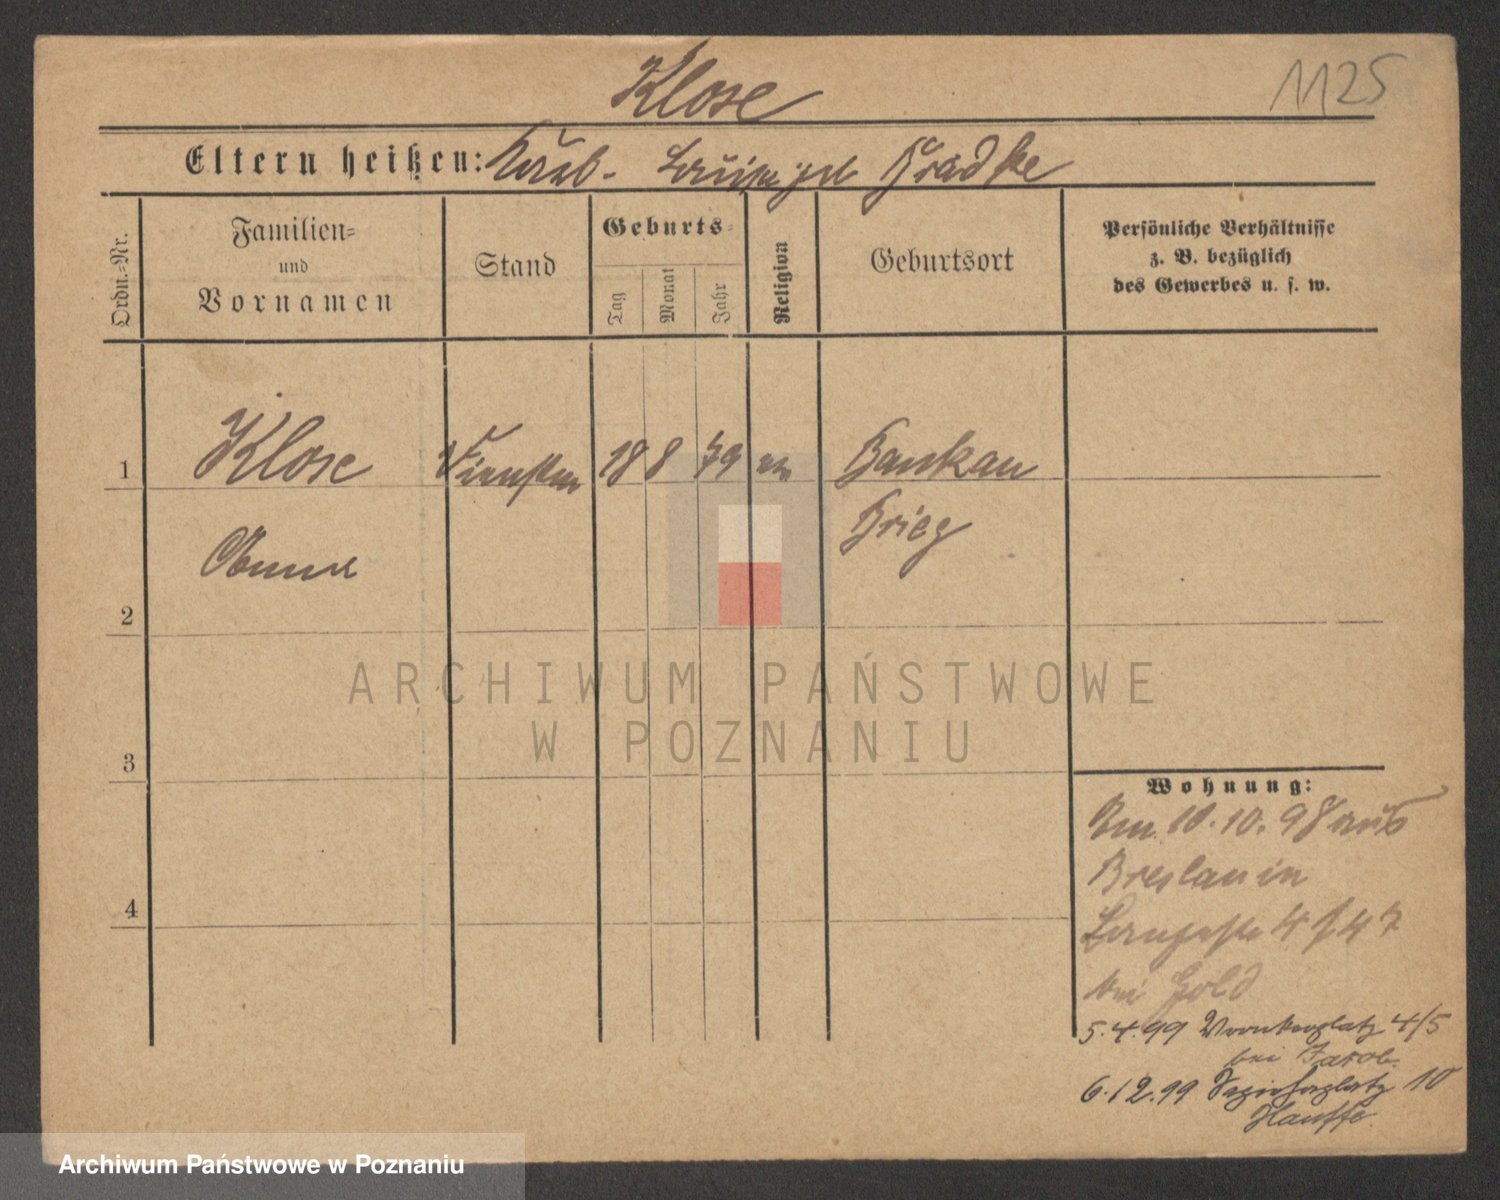 Klose
1125
Eltern heißen: Luise geb Fradke
Ordn.-Nr.
Familien-
und
Vornamen
Stand
Geburts-
Tag
Monat
Jahr
Religion
Geburtsort
Persönliche Verhältnisse
z. B. bezüglich
des Gewerbes u. s. w.
1 Klose 18 8 79 ev Bankau
Brieg
Anna
2
3
4
ARCHIWUM PAŃSTWOWE
W POZNANIU
Wohnung:
Am 10.10.98 aus
Breslau in
Langestr 4
bei Gold
5.4.99 Wronkerplatz 4/5
bei Jacob.
6.12.99 Sapiehaplatz 10
Hauffe.
Archiwum Państwowe w Poznaniu